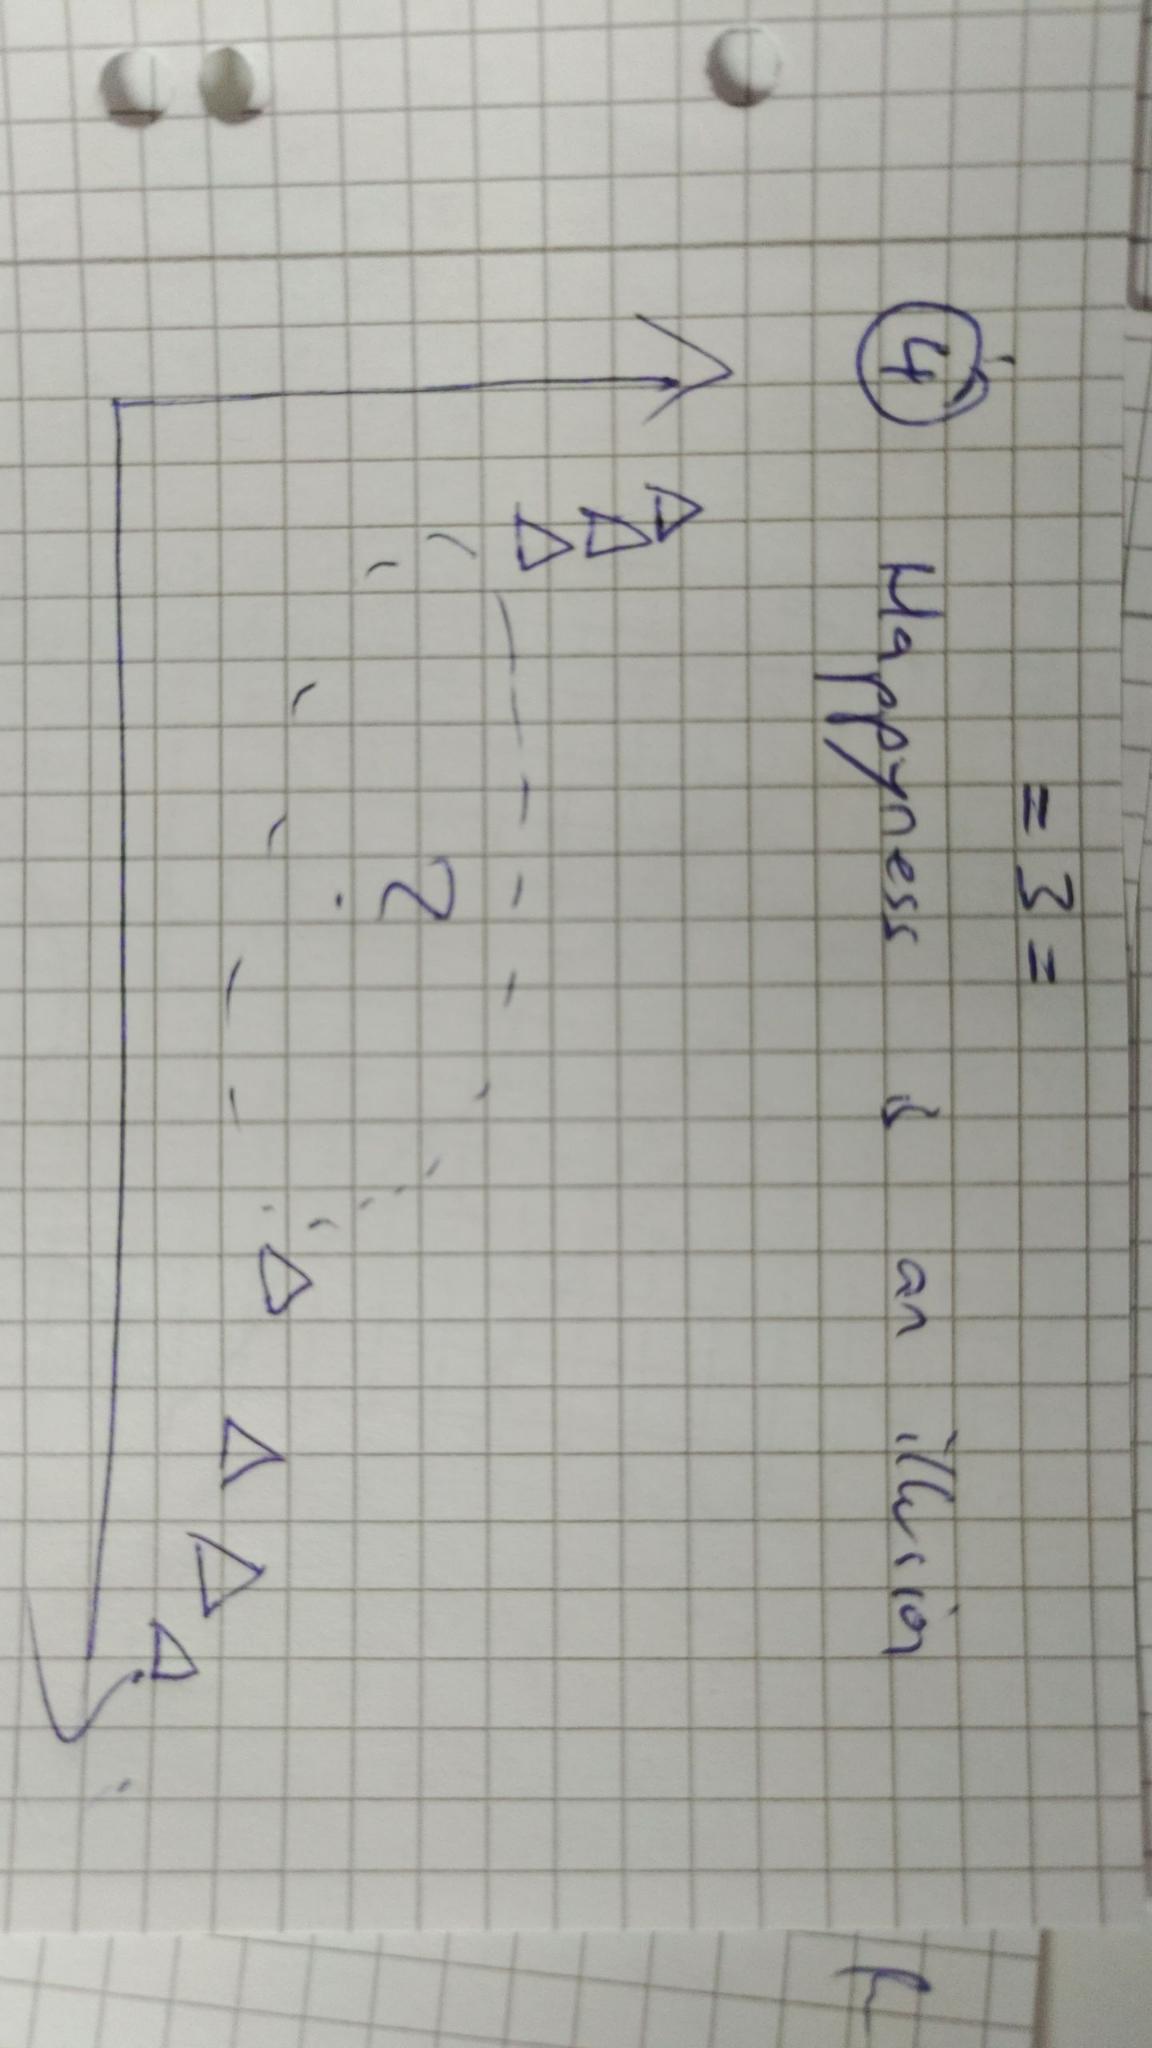 = 3 =
4 Happyness is an illusion
?